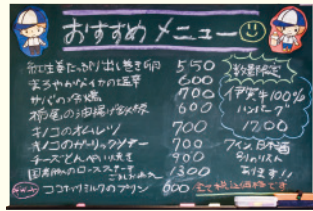 おすすめメニュー
新生姜たっぷり出し巻き卵 550
まろやかないかの塩辛 600
サバの冷燻 700
栃尾の油揚げ 600
キノコのオムレツ 700
キノコのガーリックソテー 700
チーズとんぺい焼き 900
国産豚のロースステーキ 1300
ココナッツミルクのプリン 600
全て税込価格です
数量限定
イチボ牛100%
ハンバーグ
1700
ワイン、日本酒
別のリスト
あります!!